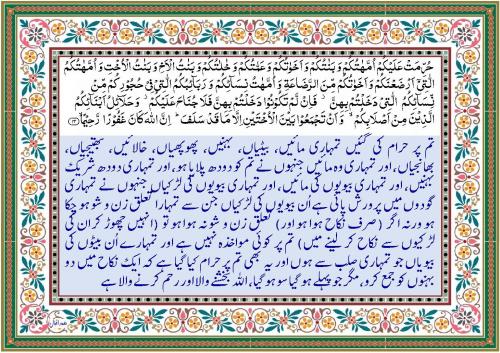 حُرِّمَتْ عَلَيْكُمْ اُمَّهٰتُكُمْ وَ بَنٰتُكُمْ وَ اَخَوٰتُكُمْ وَ عَمّٰتُكُمْ وَ خٰلٰتُكُمْ وَ بَنٰتُ الْاَخِ وَ بَنٰتُ الْاُخْتِ وَ اُمَّهٰتُكُمُ
الّٰتِيْۤ اَرْضَعْنَكُمْ وَ اَخَوٰتُكُمْ مِّنَ الرَّضَاعَةِ وَ اُمَّهٰتُ نِسَآئِكُمْ وَ رَبَآئِبُكُمُ الّٰتِيْ فِيْ حُجُوْرِكُمْ مِّنْ
نِّسَآئِكُمُ الّٰتِيْ دَخَلْتُمْ بِهِنَّ ؗ فَاِنْ لَّمْ تَكُوْنُوْا دَخَلْتُمْ بِهِنَّ فَلَا جُنَاحَ عَلَيْكُمْ ؗ وَ حَلَآئِلُ اَبْنَآئِكُمُ
الَّذِيْنَ مِنْ اَصْلَابِكُمْ ۙ وَ اَنْ تَجْمَعُوْا بَيْنَ الْاُخْتَيْنِ اِلَّا مَا قَدْ سَلَفَ ؕ اِنَّ اللّٰهَ كَانَ غَفُوْرًا رَّحِيْمًا ﴿۲۳﴾
تم پر حرام کی گئیں تمہاری مائیں، بیٹیاں، بہنیں، پھوپھیاں، خالائیں، بھتیجیاں،
بھانجیاں، اور تمہاری وہ مائیں جنہوں نے تم کو دودھ پلایا ہو، اور تمہاری دودھ شریک
بہنیں، اور تمہاری بیویوں کی مائیں، اور تمہاری بیویوں کی لڑکیاں جنہوں نے تمہاری
گودوں میں پرورش پائی ہے اُن بیویوں کی لڑکیاں جن سے تمہارا تعلق زن و شو ہو چکا
ہو ورنہ اگر (صرف نکاح ہوا ہو اور) تعلق زن و شو نہ ہوا ہو تو (انہیں چھوڑ کر ان کی
لڑکیوں سے نکاح کر لینے میں) تم پر کوئی مواخذہ نہیں ہے اور تمہارے اُن بیٹوں کی
بیویاں جو تمہاری صلب سے ہوں اور یہ بھی تم پر حرام کیا گیا ہے کہ ایک نکاح میں دو
بہنوں کو جمع کرو، مگر جو پہلے ہو گیا سو ہو گیا، اللہ بخشنے والا اور رحم کرنے والا ہے